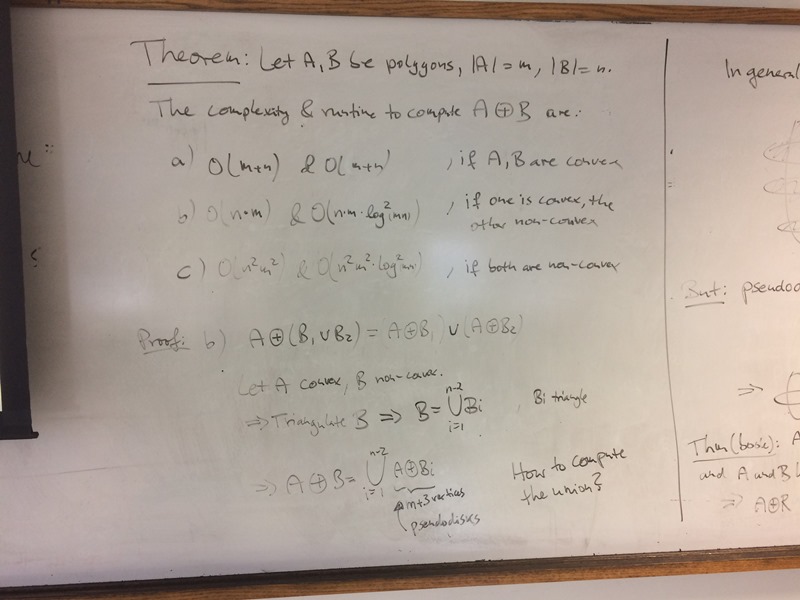 Theorem: Let A, B be polygons, |A| = m, |B| = n.
The complexity & runtime to compute A ⊕ B are:
a) O(m+n) & O(m+n) , if A, B are convex
b) O(n·m) & O(n·m·log²(mn)) , if one is convex, the
other non-convex
c) O(n²m²) & O(n²m²·log²(mn)) , if both are non-convex
Proof: b) A⊕(B₁∪B₂) = (A⊕B₁) ∪ (A⊕B₂)
Let A convex, B non-convex.
⇒ Triangulate B ⇒ B = ⋃ᵢ₌₁ⁿ⁻² Bi , Bi triangle
⇒ A⊕B = ⋃ᵢ₌₁ⁿ⁻² A⊕Bi
m+3 vertices
pseudodisks
How to compute
the union?
In general
But: pseudod
⇒
Thm (book): A
and A and B
⇒ A⊕B